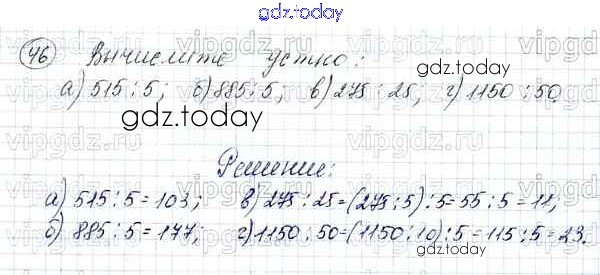 gdz.today
46 Вычислите устно:
а) 515 : 5; б) 885 : 5; в) 275 : 25; г) 1150 : 50.
gdz.today
gdz.today
Решение:
а) 515 : 5 = 103; в) 275 : 25 = (275 : 5) : 5 = 55 : 5 = 11;
б) 885 : 5 = 177; г) 1150 : 50 = (1150 : 10) : 5 = 115 : 5 = 23.
gdz.today